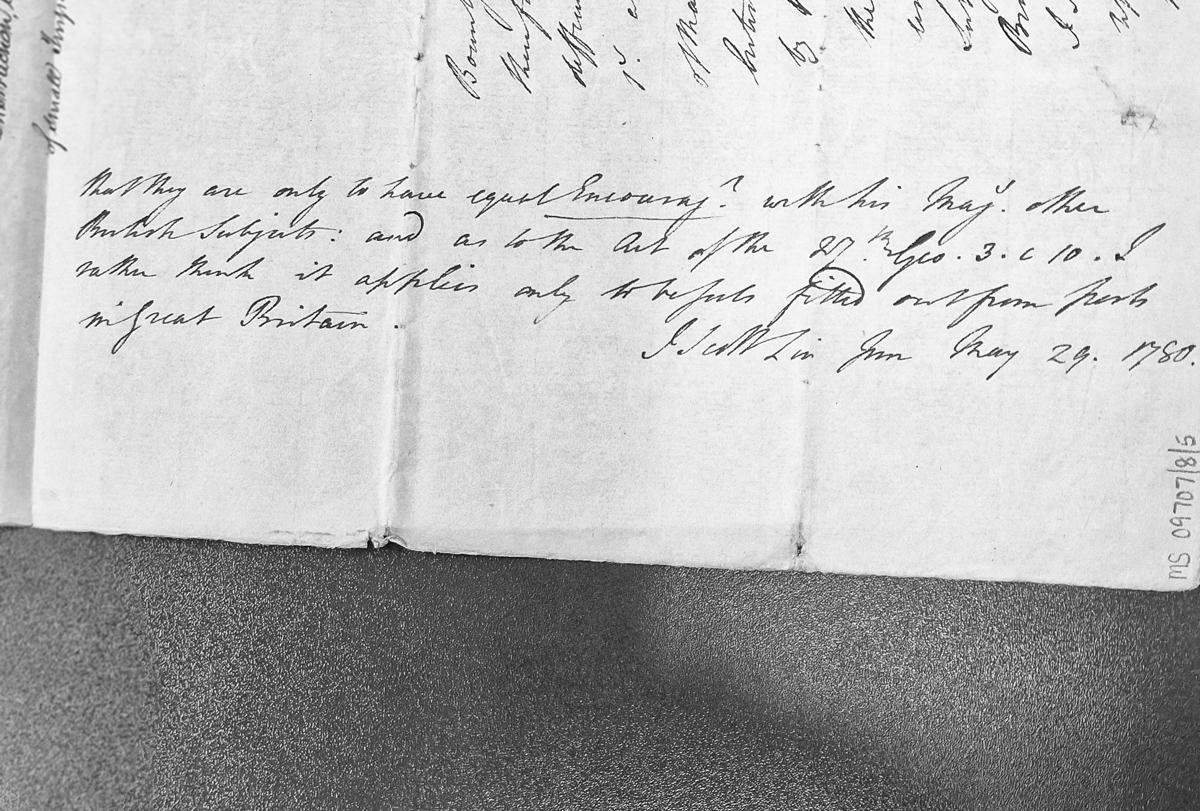 that they are only to have equal Encouragt. with his Majs. other
British Subjects: and as to the Act of the 27th. Geo. 3. c 10. I
rather think it applies only to vessels fitted out from ports
in Great Britain.
J Scott Lin Inn May 29. 1780.
MS 09707/8/5
Boun
of
by
the